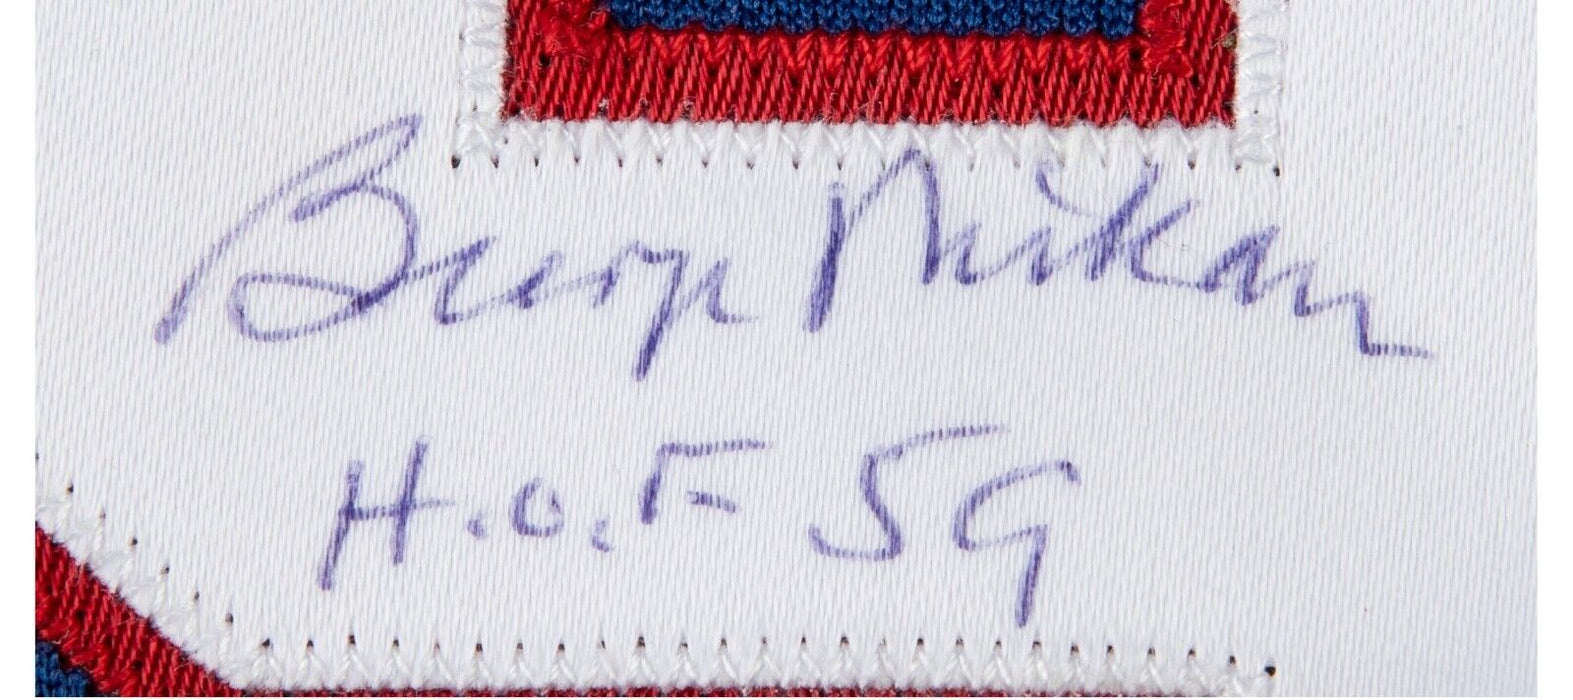 George Mikan
H.O.F 59